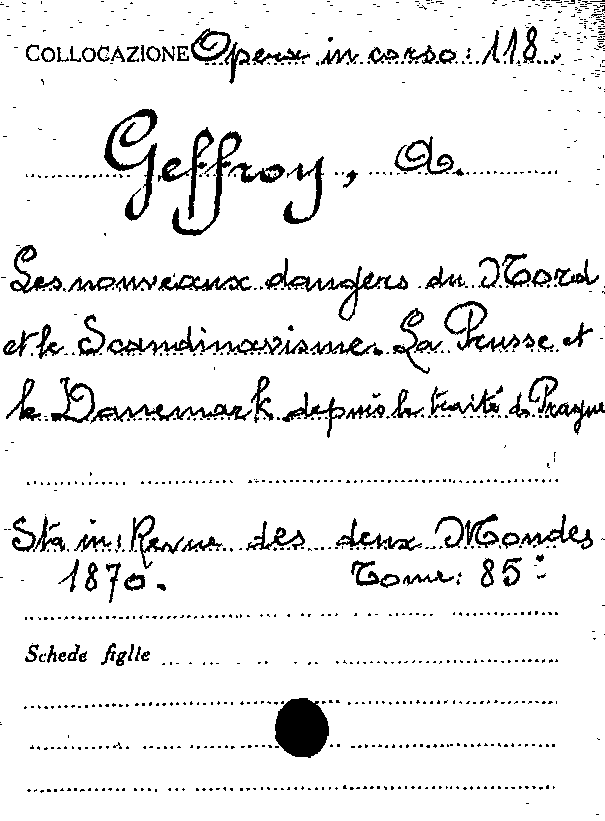 COLLOCAZIONE Opera in corso: 118.
Geffroy, A.
Les nouveaux dangers du Nord
et le Scandinavisme. La Prusse et
le Danemark depuis le traité de Prague
Sta in: Revue des deux Mondes
1870. Tome: 85º
Schede figlie